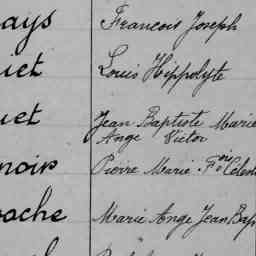 ays François Joseph
iet Louis Hippolyte
uet Jean Baptiste Marie
Ange Victor
noir Pierre Marie Fois Celest
oache Marie Ange Jean Bap